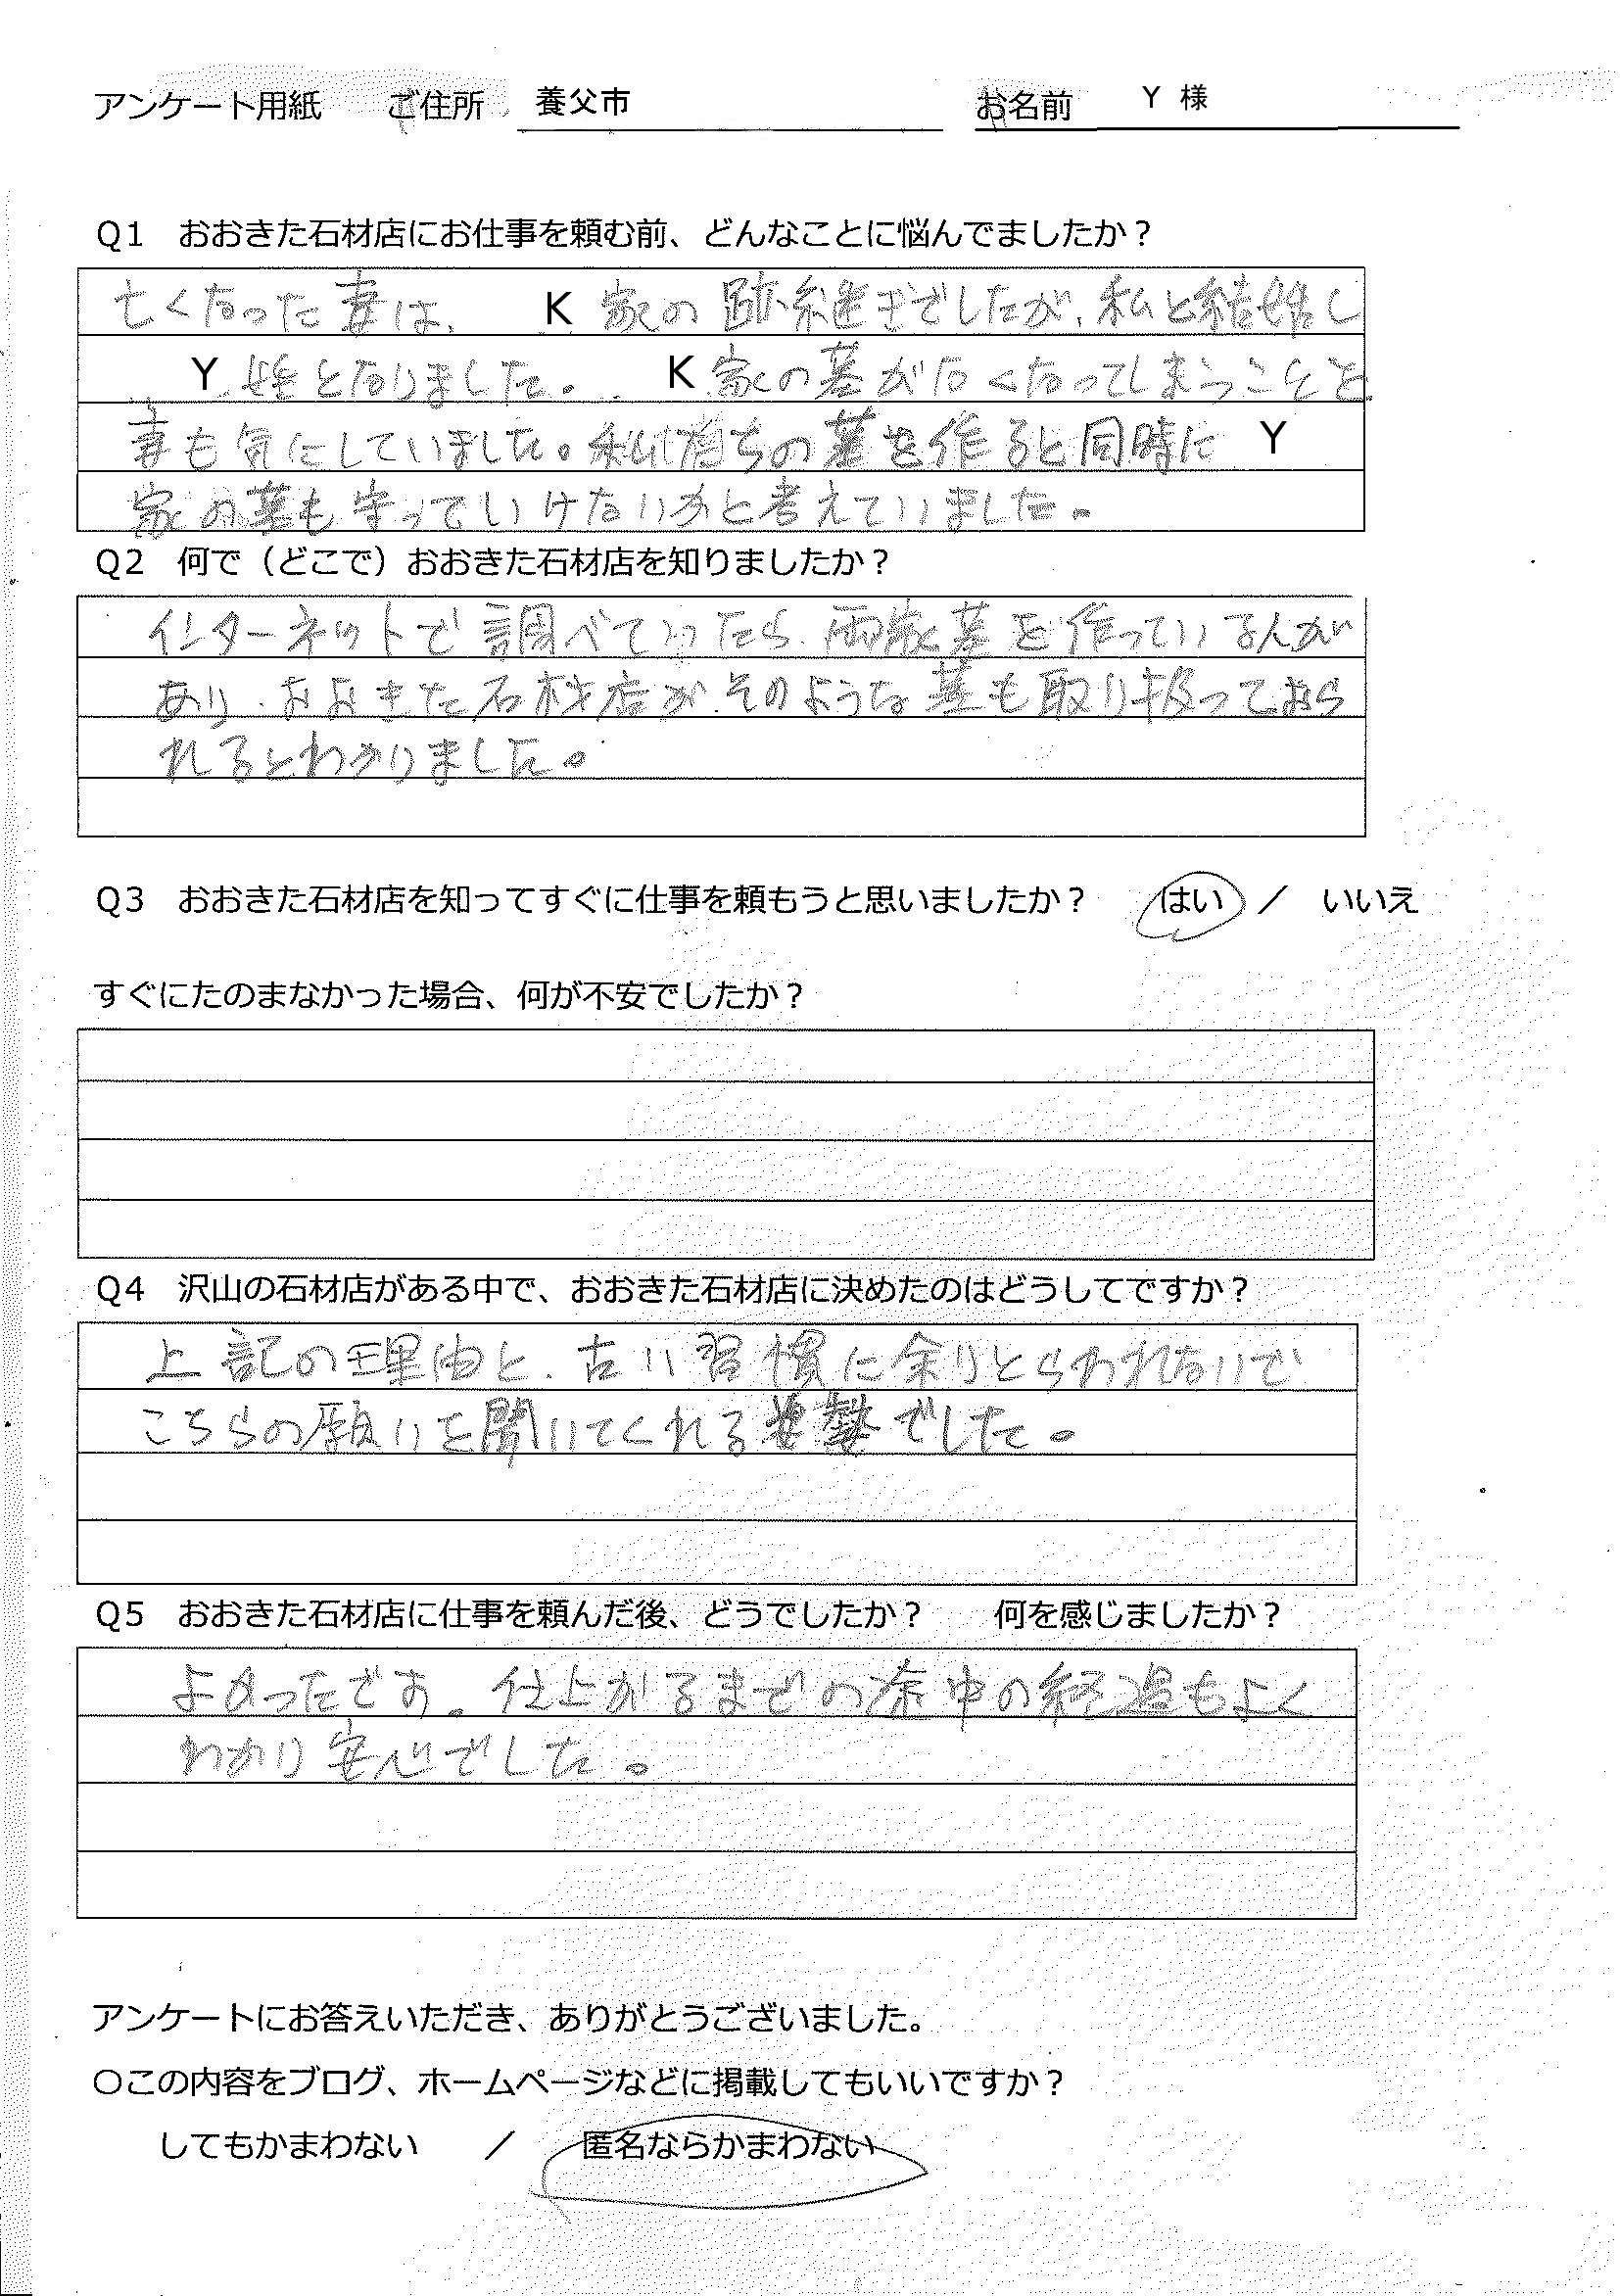 アンケート用紙 ご住所 養父市 お名前 Y 様
Q1 おおきた石材店にお仕事を頼む前、どんなことに悩んでましたか？
亡くなった妻は、 K 家の跡継ぎでしたが、私と結婚し
Y 姓となりました。 K 家の墓がなくなってしまうことを
妻も気にしていました。私たちの墓を作ると同時に Y
家の墓も守っていけないかと考えていました。
Q2 何で（どこで）おおきた石材店を知りましたか？
インターネットで調べていったら、両家墓を作っている人が
あり、おおきた石材店が、そのような墓も取り扱っておら
れるとわかりました。
Q3 おおきた石材店を知ってすぐに仕事を頼もうと思いましたか？ はい ／ いいえ
すぐにたのまなかった場合、何が不安でしたか？
Q4 沢山の石材店がある中で、おおきた石材店に決めたのはどうしてですか？
上記の理由と、古い習慣に余りとらわれないで
こちらの願いを聞いてくれる姿勢でした。
Q5 おおきた石材店に仕事を頼んだ後、どうでしたか？ 何を感じましたか？
よかったです。仕上がるまでの途中の経過もよく
わかり安心でした。
アンケートにお答えいただき、ありがとうございました。
〇この内容をブログ、ホームページなどに掲載してもいいですか？
してもかまわない ／ 匿名ならかまわない